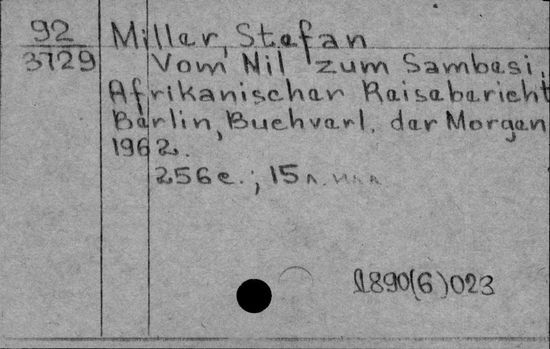 92
3729
Miller, Stefan
Vom Nil zum Sambesi.
Afrikanischer Reisebericht
Berlin, Buchverl. der Morgen
1962.
256c.; 15 л. илл
Д890(6)023